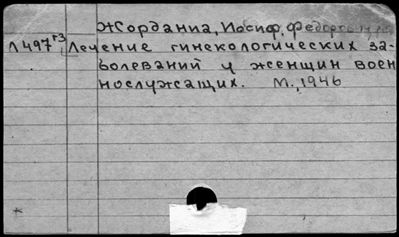 Жордания, Иосиф, Федорович
Л497гз Лечение гинекологических за-
болеваний у женщин воен
нослужащих. М., 1946
*